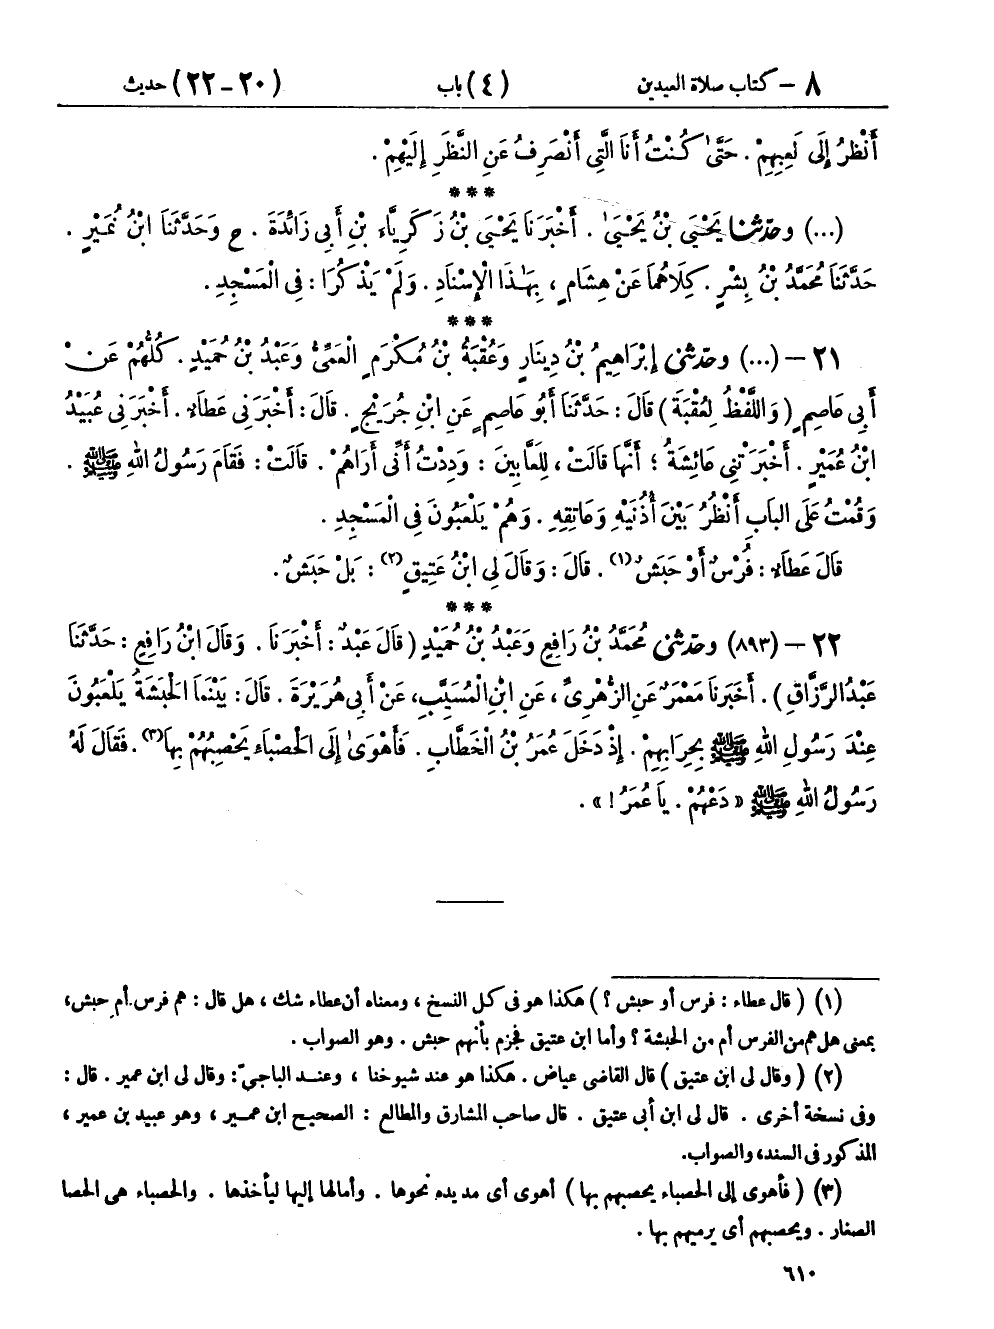 ٨ – كتاب صلاة العيدين (٤) باب (٢٠-٢٢) حديث
أَنْظُرُ إِلَى لَعِبِهِمْ. حَتَّىٰ كُنْتُ أَنَا الَّتِي أَنْصَرِفُ عَنِ النَّظَرِ إِلَيْهِمْ.
***
(...) وحدّثنا يَحْيَى بْنُ يَحْيَىٰ. أَخْبَرَنَا يَحْيَى بْنُ زَكَرِيَّاءَ بْنِ أَبِي زَائِدَةَ. ح وَحَدَّثَنَا ابْنُ نُمَيْرٍ.
حَدَّثَنَا مُحَمَّدُ بْنُ بِشْرٍ. كِلَاهُمَا عَنْ هِشَامٍ، بِهَـٰذَا الْإِسْنَادِ. وَلَمْ يَذْكُرَا: فِي الْمَسْجِدِ.
***
٢١ – (...) وحدّثني إِبْرَاهِيمُ بْنُ دِينَارٍ وَعُقْبَةُ بْنُ مُكْرَمٍ الْعَمِّيُّ وَعَبْدُ بْنُ حُمَيْدٍ. كُلُّهُمْ عَنْ
أَبِي عَاصِمٍ (وَاللَّفْظُ لِعُقْبَةَ) قَالَ: حَدَّثَنَا أَبُو عَاصِمٍ عَنِ ابْنِ جُرَيْجٍ. قَالَ: أَخْبَرَنِي عَطَاءٌ. أَخْبَرَنِي عُبَيْدُ
ابْنُ عُمَيْرٍ. أَخْبَرَتْنِي عَائِشَةُ؛ أَنَّهَا قَالَتْ، لِلَعَّابِينَ: وَدِدْتُ أَنِّي أَرَاهُمْ. قَالَتْ: فَقَامَ رَسُولُ اللهِ ﷺ.
وَقُمْتُ عَلَى الْبَابِ أَنْظُرُ بَيْنَ أُذُنَيْهِ وَعَاتِقِهِ. وَهُمْ يَلْعَبُونَ فِي الْمَسْجِدِ.
قَالَ عَطَاءٌ: فُرْسٌ أَوْ حَبَشٌ(١). قَالَ: وَقَالَ لِي ابْنُ عَتِيقٍ(٢): بَلْ حَبَشٌ.
***
٢٢ – (٨٩٣) وحدّثني مُحَمَّدُ بْنُ رَافِعٍ وَعَبْدُ بْنُ حُمَيْدٍ (قَالَ عَبْدٌ: أَخْبَرَنَا. وَقَالَ ابْنُ رَافِعٍ: حَدَّثَنَا
عَبْدُ الرَّزَّاقِ). أَخْبَرَنَا مَعْمَرٌ عَنِ الزُّهْرِيِّ، عَنِ ابْنِ الْمُسَيَّبِ، عَنْ أَبِي هُرَيْرَةَ. قَالَ: بَيْنَمَا الْحَبَشَةُ يَلْعَبُونَ
عِنْدَ رَسُولِ اللهِ ﷺ بِحِرَابِهِمْ. إِذْ دَخَلَ عُمَرُ بْنُ الْخَطَّابِ. فَأَهْوَىٰ إِلَى الْحَصْبَاءِ يَحْصِبُهُمْ بِهَا(٣). فَقَالَ لَهُ
رَسُولُ اللهِ ﷺ «دَعْهُمْ. يَا عُمَرُ!».
(١) (قال عطاء: فرس أو حبش؟) هكذا هو في كل النسخ، ومعناه أن عطاء شك، هل قال: هم فرس أم حبش،
بمعنى هل هم من الفرس أم من الحبشة؟ وأما ابن عتيق فجزم بأنهم حبش. وهو الصواب.
(٢) (وقال لي ابن عتيق) قال القاضي عياض. هكذا هو عند شيوخنا، وعند الباجيّ: وقال لي ابن عمير. قال:
وفي نسخة أخرى. قال لي ابن أبي عتيق. قال صاحب المشارق والمطالع: الصحيح ابن عمير، وهو عبيد بن عمير،
المذكور في السند، والصواب.
(٣) (فأهوى إلى الحصباء يحصبهم بها) أهوى أي مد يده نحوها. وأمالها إليها ليأخذها. والحصباء هي الحصا
الصغار. ويحصبهم أي يرميهم بها.
٦١٠